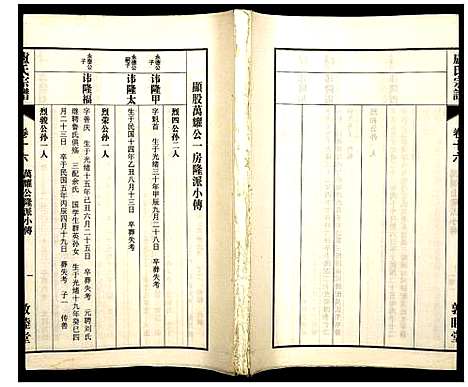 盧氏宗譜
卷十六
敦睦堂
顯股萬燿公一房隆派小傳
烈四公孫二人
永德公子
諱隆甲
字魁首 生于光緒三十年甲辰九月二十八日 卒葬失考
永德公嗣子
諱隆太
生于民国十四年乙丑八月十三日 卒葬失考
烈荣公孙一人
永德公子
諱隆福
字善庆 生于光緒十五年己丑六月二十五日 卒葬失考 元聘刘氏
继聘鲁氏俱殇 三配余氏 国学生群英孙女 生于光緒十九年癸巳四
月二十三日 卒于民国五年丙辰四月十九日 葬失考 子一 传兽
烈骏公孙一人
盧氏宗譜
卷十六
萬燿公隆派小傳
一
敦睦堂